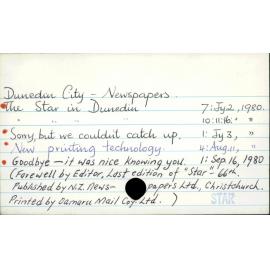 Dunedin City - Newspapers.
The Star in Dunedin 7: Jy 2, 1980.
" " " " 10: 11: 16: " "
Sorry, but we couldn't catch up. 1: Jy 3, " "
New printing technology. 4: Aug. 11, " "
Goodbye - it was nice knowing you. 1: Sep 16, 1980
(Farewell by Editor, Last edition of "Star"
Published by N.Z. News- papers Ltd., Christchurch.
Printed by Oamaru Mail Coy. Ltd. )
STAR